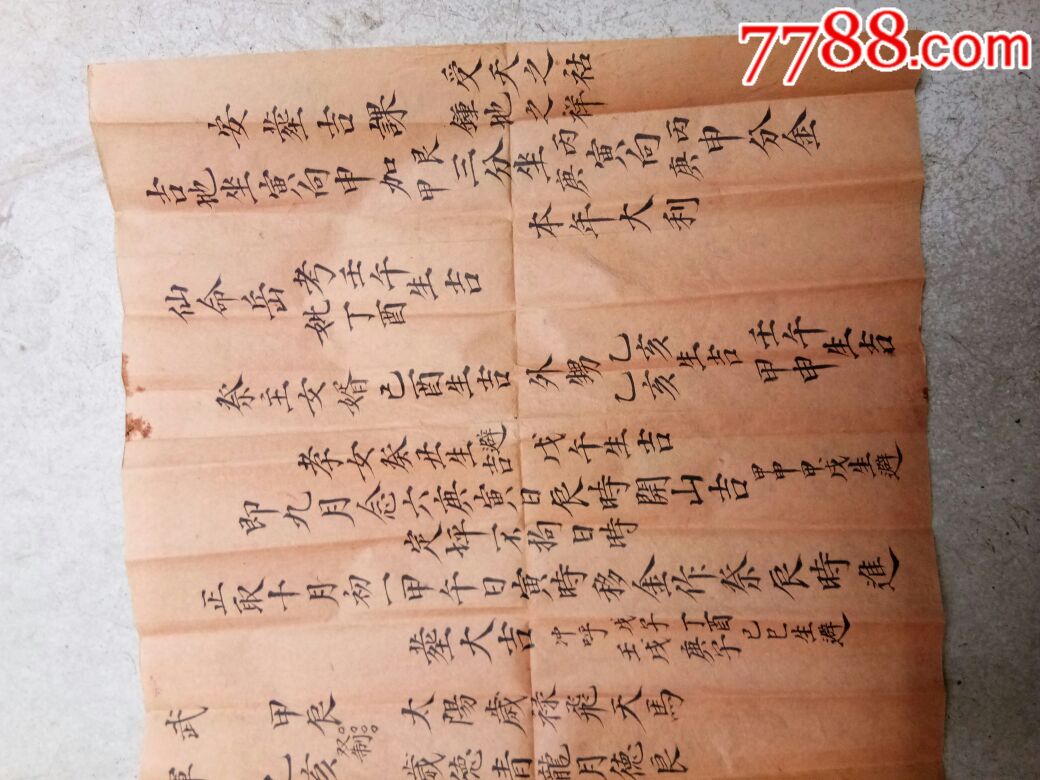 7788.com
安塋吉課 受天之祜
鍾地之祥
吉地坐寅向申加艮甲三分坐丙庚寅向丙庚申分金
本年大利
仙命岳考壬午生吉
妣丁酉
祭主女婿己酉生吉 外甥乙亥生吉 壬午生吉
乙亥 甲申
孝女癸丑生吉避 戊午生吉
即九月念六庚寅日辰時開山吉 甲申甲戌生避
定坪不拘日時
正取十月初一甲午日寅時移金作祭辰時進
塋大吉 冲呼戊子丁酉
壬戌庚子己巳生避
武 甲辰 太陽歲祿飛天馬
亥 双制 歲德青龍月德辰